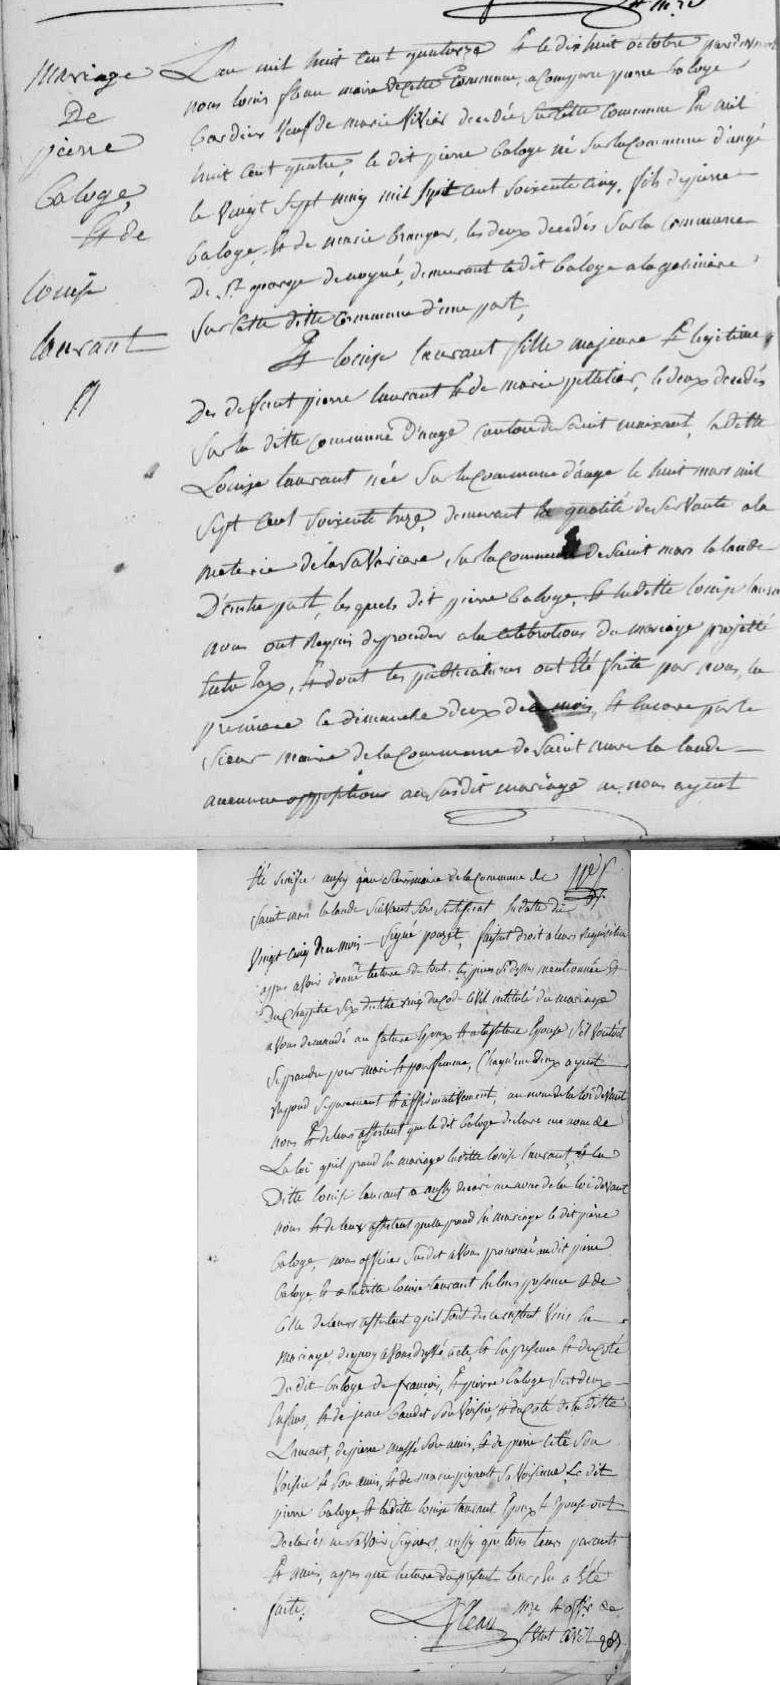 mariage
De
pierre
Baloge,
Et de
louise
laurant
L'an mil huit cent quatorze Et le dix huit octobre pardevant
nous louis fleau maire de cette Commune, a comparu pierre baloge
bordier Veuf de marie Vivier decedée sur cette Commune En avil
huit Cent quatre, le dit pierre baloge né sur la Commune d'augé
le Vingt Sept may mil Sept Cent Soixente Cinq, fils de pierre
baloge, Et de marie branger, les deux decedés sur la Commune
De St george de noyné, demeurant le dit baloge a la
Sur Cette ditte Commune d'une part,
Et louise laurant fille majeure Et legitime
Des deffunt pierre laurant Et de marie pelletier, le deux decedés
Sur la ditte Commune D'auge canton de Saint maixent, la ditte
Louise laurant née sur la Commune d'auge le huit mars mil
Sept Cent Soixente treze, demeurant En qualité de Servante a la
meterie de la Savariere, sur la Commune de Saint mars la lande
D'autre part, lesquels dit pierre baloge, Et la ditte louise lauran
nous ont Requis de proceder a la celebrations du mariage projetté
Entre Eux, Et dont les publications ont Eté faite par nous, la
premiere le dimanche deux de ce mois, Et Encore par le
Sieur maire de la Commune de Saint marc la lande
aucunne oppositions au Susdit mariage ne nous ayent
Eté Signifie aussy qu'au Sieur maire de la Commune de
Saint mars la lande Suivant Son Certificat En datte du
Vingt Cinq du mois - Signé pouzet, faisant droit a leurs requisition
apres avoir donné lecture de tout les pieces Si dessus mentionnée Et
Du Chapitre Six du titre Cinq du Code Civil intitulé du mariage
avons demandé au future Epoux Et a la future Epouse S'il Veulent
Se prandre pour mari Et pour femme, Chaq'un deux ayent
repond Separement Et affirmativement, au nom de la loi devant
nous Et de leurs assistent que le dit baloge declare au nom de
La loi qu'il prand En mariage laditte louise laurant, Et la
Ditte louise laurant a aussy declaré au nom de la loi devant
nous Et de leurs assistent quelle prand En mariage le dit pierre
baloge, nous officier Susdit avons prononcé au dit pierre
baloge Et a laditte louise laurant En leurs presence Et de
Celle de leurs assistent qu'il Sont des Cet instant Unis En
mariage, de quoy avons dressé acte, Et En presence Et du Coté
Du dit baloge de francois, Et pierre baloge Ses deux
Enfans, Et de jean baudet Son Voisin, Et du Coté de la ditte
Laurant, de pierre massé Son amis, Et de pierre Son
Voisin Et Son amis, Et de marie Sa Voisinne, Le dit
pierre baloge, Et laditte louise laurant Epoux Et Epouse ont
Declarés ne Savoir Signers, aussy que tous leurs parants
Et amis, apres que lecture du present leurs En a Eté
faite.
Lfleau mre Et offr. de
l'Etat Civil